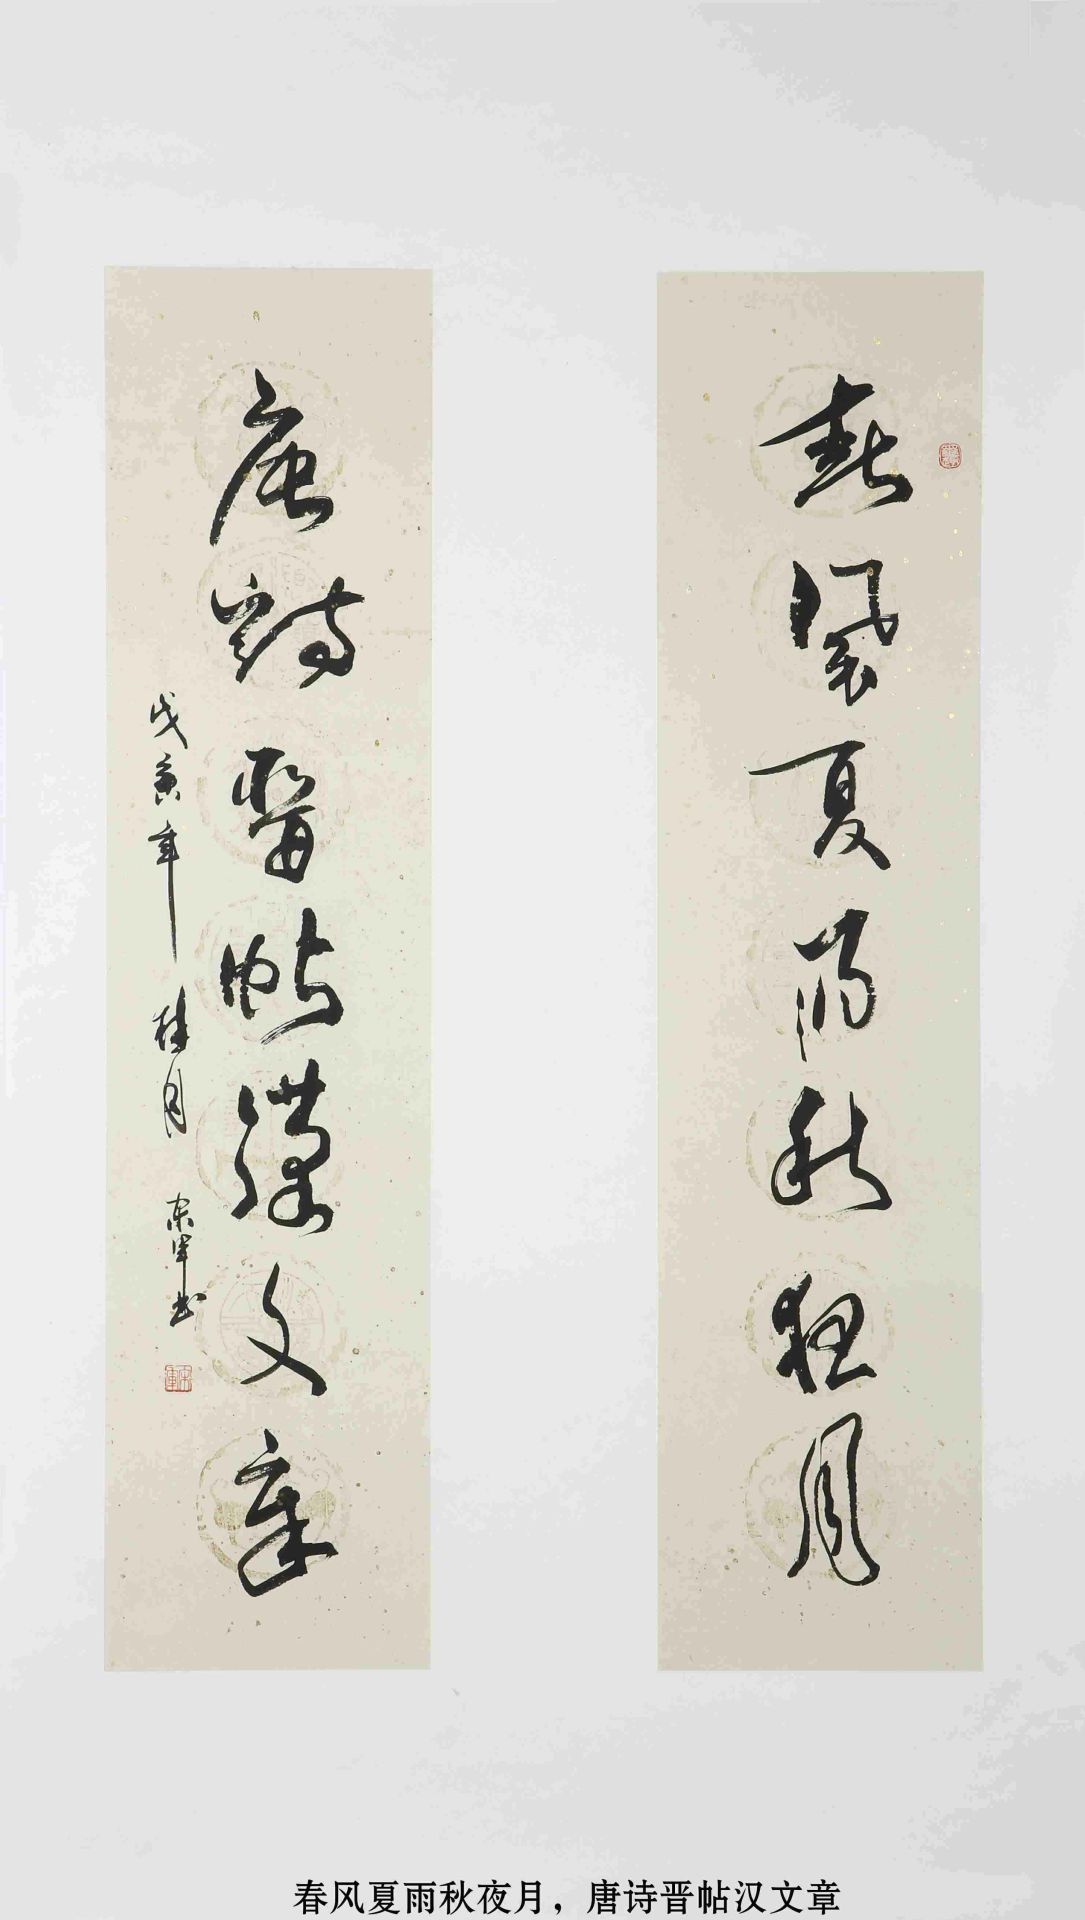 春風夏雨秋夜月
唐詩晉帖漢文章
戊寅年桂月宋軍书
春风夏雨秋夜月，唐诗晋帖汉文章